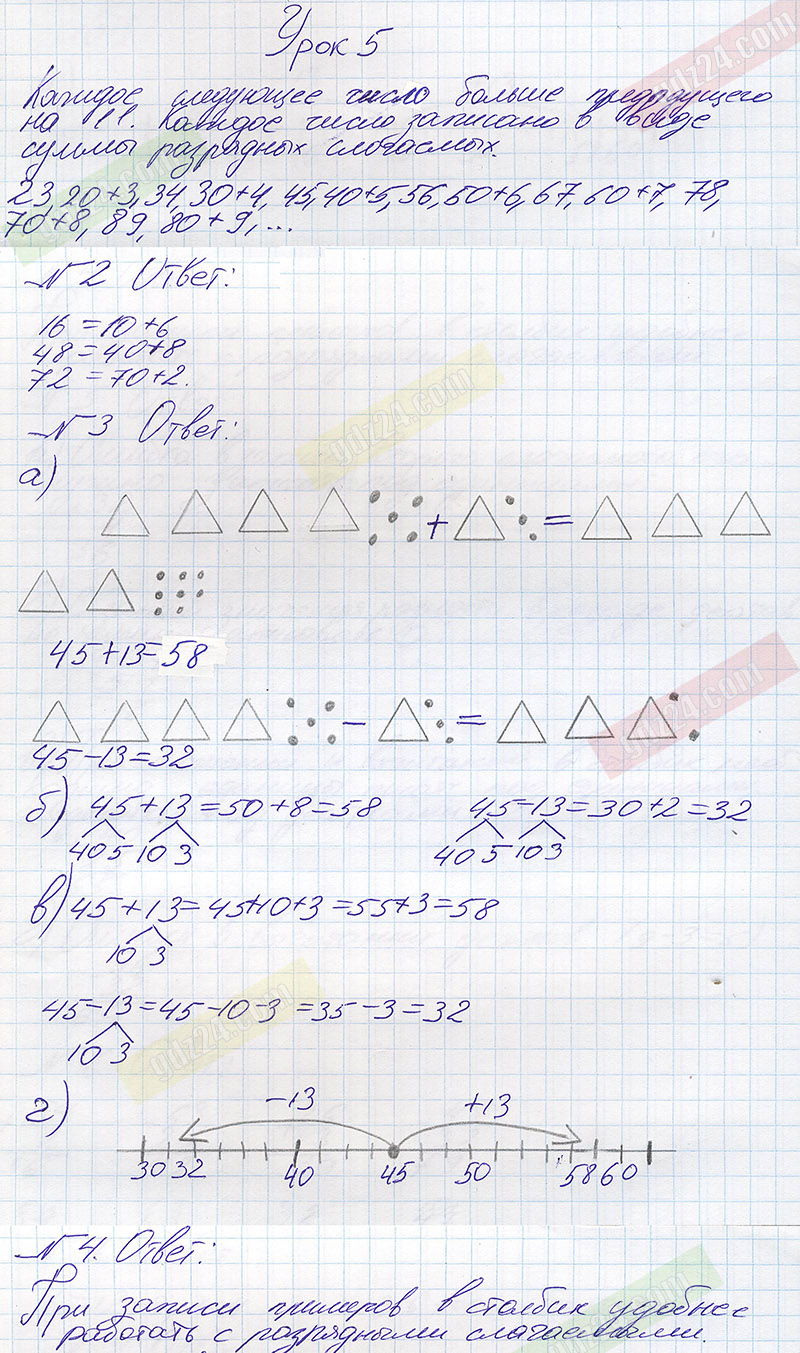 Урок 5
Каждое следующее число больше предыдущего
на 11. Каждое число записано в виде
суммы разрядных слогаемых.
23, 20+3, 34, 30+4, 45, 40+5, 56, 50+6, 67, 60+7, 78,
70+8, 89, 80+9, ...
№2 Ответ:
16 = 10+6
48 = 40+8
72 = 70+2.
№3 Ответ:
а)
+ =
45+13=58
- =
45-13=32
б) 45+13=50+8=58 45-13=30+2=32
40 5 10 3 40 5 10 3
в) 45+13=45+10+3=55+3=58
10 3
45-13=45-10-3=35-3=32
10 3
г) -13 +13
30 32 40 45 50 58 60
№4. Ответ:
При записи примеров в столбик удобнее
работать с разрядными слагаемыми.
gdz24.com
gdz24.com
gdz24.com
gdz24.com
gdz24.com
gdz24.com